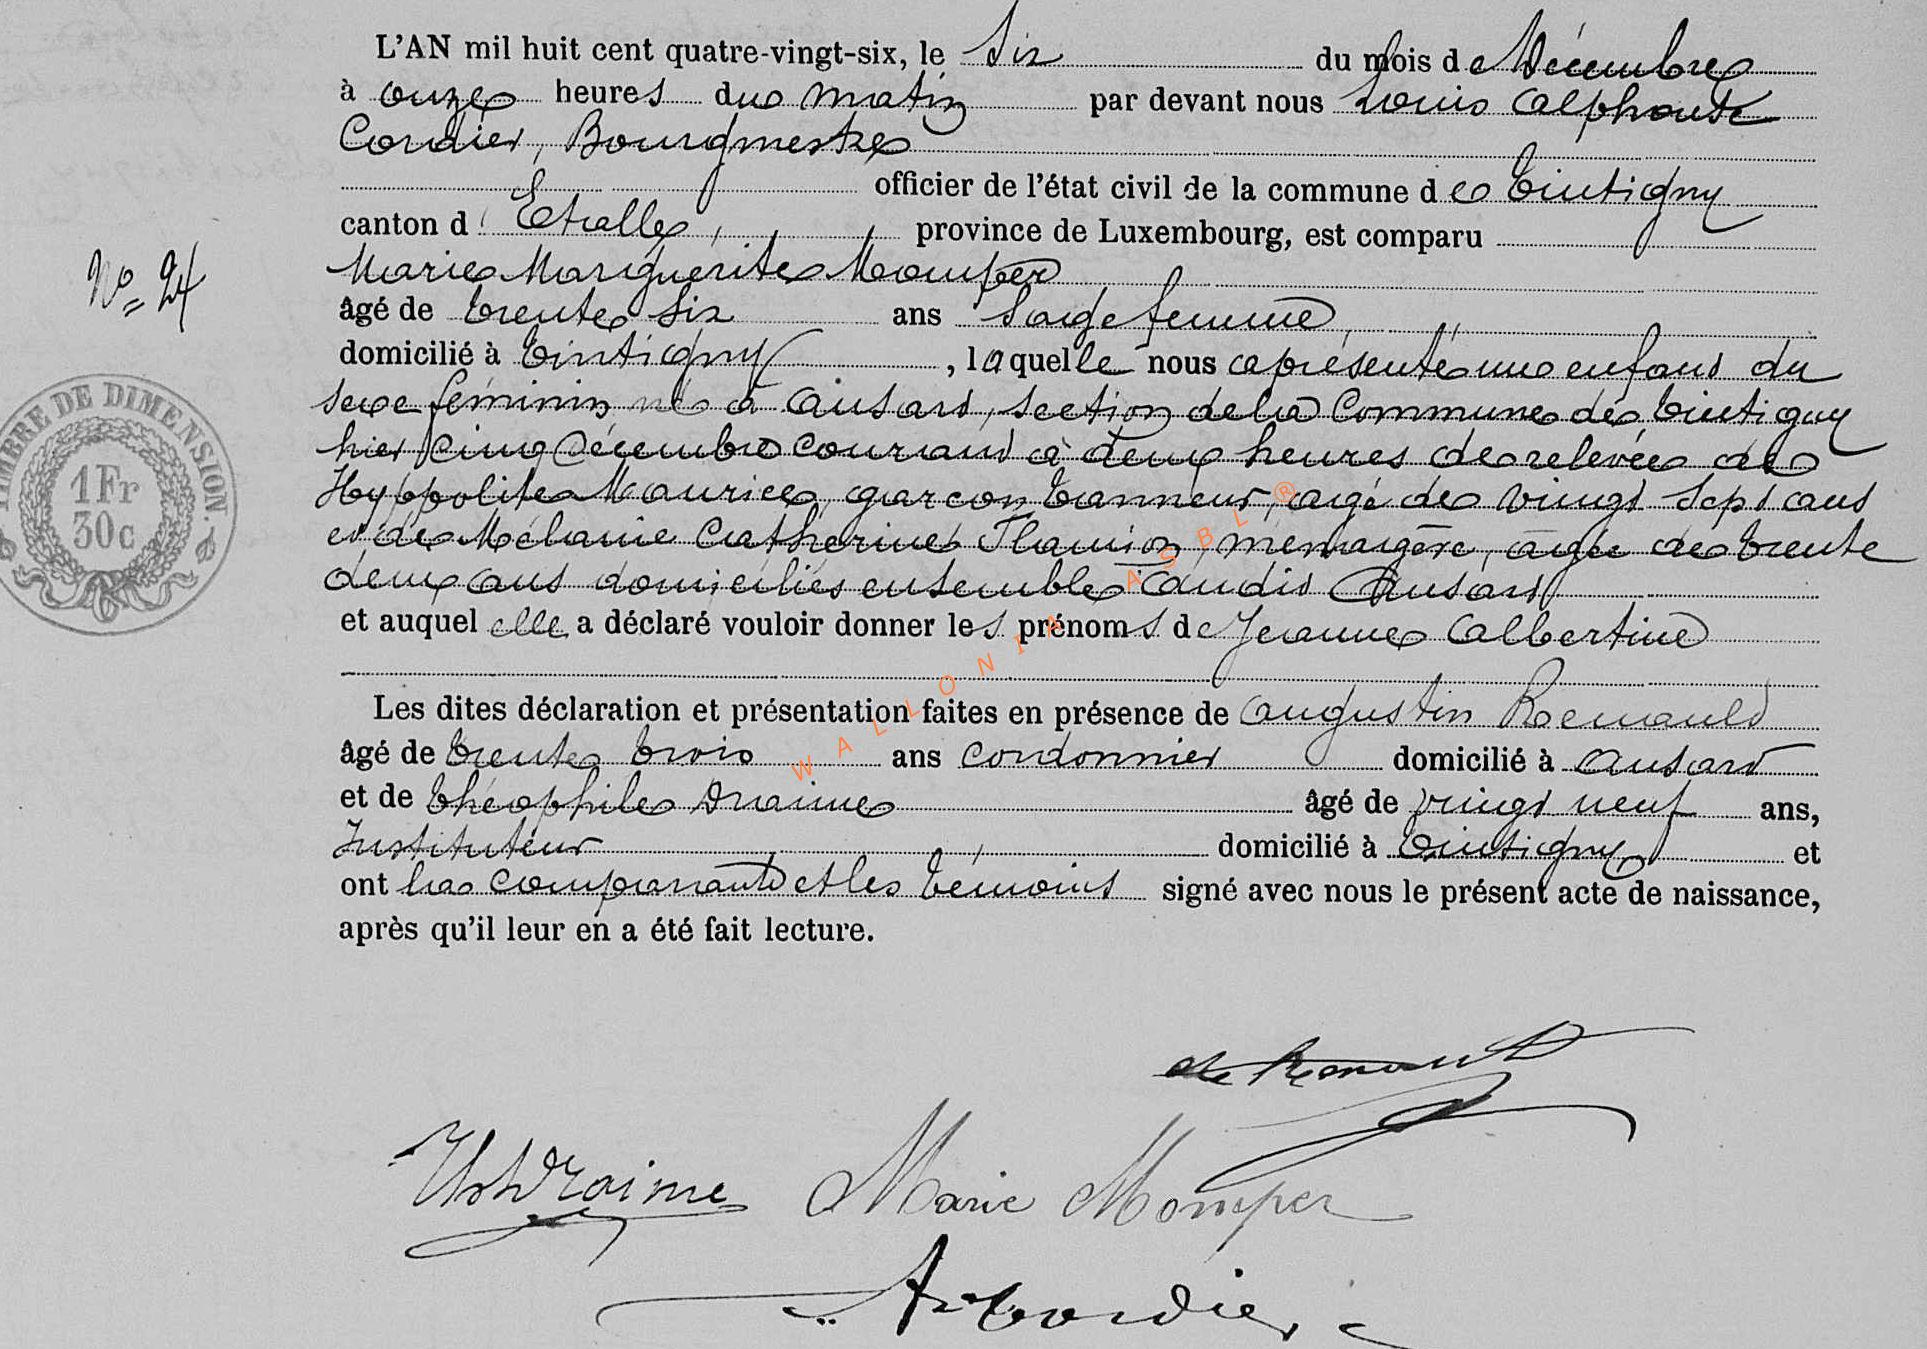 L'AN mil huit cent quatre-vingt-six, le Six du mois de Décembre
à onze heures du matin par devant nous Louis Alphonse
Cordier, Bourgmestre
officier de l'état civil de la commune de Tintigny
canton d'Etalle, province de Luxembourg, est comparu
Marie Marguerite Momper
N° 24
âgé de trente six ans Sage femme,
domicilié à Tintigny, laquelle nous a présenté un enfant du
sexe féminin né à Ansart, section de la Commune de Tintigny
hier cinq Décembre courant à deux heures de relevée de
Hyppolite Maurice, garçon tanneur, agé de vingt sept ans
et de Mélanie Catherine Flamion, ménagère, agée de trente
deux ans domiciliés ensemble audit Ansart
et auquel elle a déclaré vouloir donner les prénoms de Jeanne Albertine
Les dites déclaration et présentation faites en présence de Augustin Renauld
âgé de trente trois ans cordonnier domicilié à Ansart
et de Théophile Draime âgé de vingt neuf ans,
Instituteur domicilié à Tintigny et
ont la comparante et les témoins signé avec nous le présent acte de naissance,
après qu'il leur en a été fait lecture.
TIMBRE DE DIMENSION.
1 Fr
30 c
WALLONIA ASBL ®
Renauld
Draime Marie Momper
A Cordier